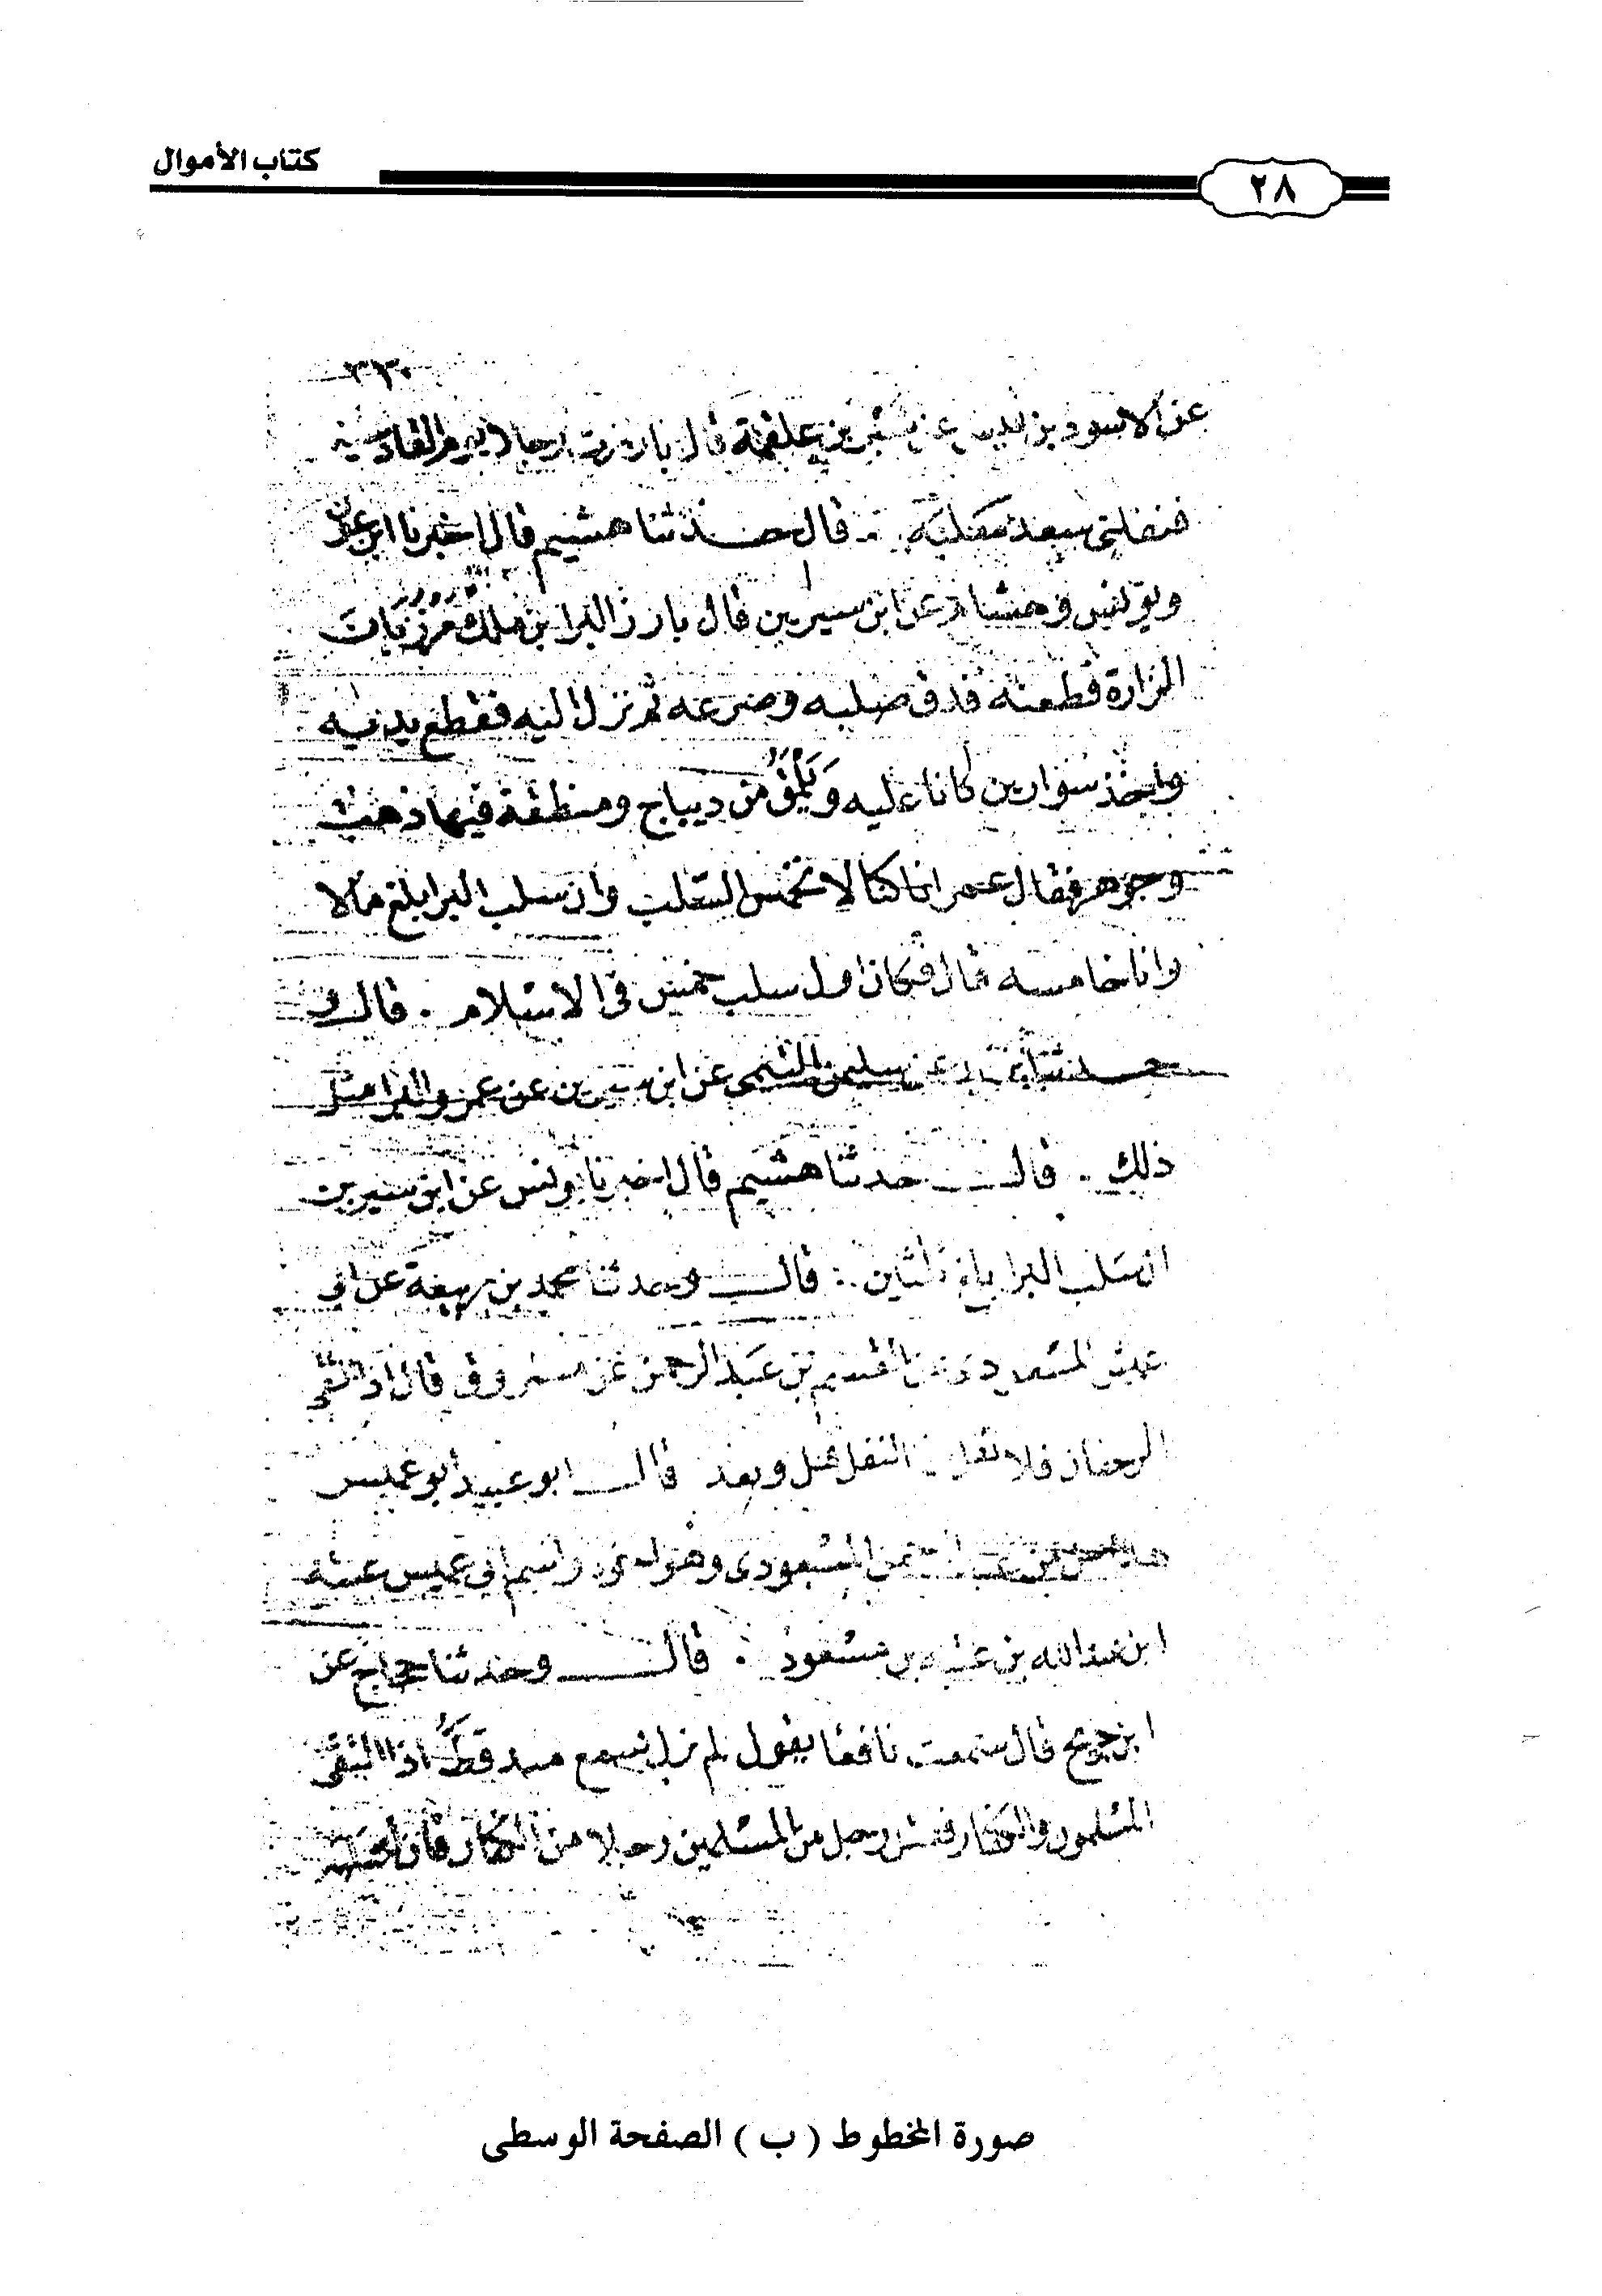 كتاب الأموال
٢٨
عن الاسود بن قيس عن شبر بن علقمة قال بارزت رجلا يوم القادسية
فنفلني سعد سلبه قال حدثنا هشيم قال اخبرنا ابن عون
ويونس وهشام عن ابن سيرين قال بارز البرا بن ملك مرزبان
الزارة فطعنه فدق صلبه وصرعه ثم نزل اليه فقطع يديه
واخذ سوارين كانا عليه ويلمق من ديباج ومنطقة فيها ذهب
وجوهر فقال عمر انا كنا لا نخمس السلب وان سلب البرا بلغ مالا
وانا خامسه قال فكان اول سلب خمس في الاسلام . قال و
حدثنا عن سليمن التيمي عن ابن سيرين عن عمر والبرا مثل
ذلك . قال حدثنا هشيم قال اخبرنا يونس عن ابن سيرين
ان سلب البرا بلغ ثلثين قال وحدثنا محمد بن ربيعة عن ابي
عميس المسعودي عن القسم بن عبد الرحمن عن مسروق قال اذا التقى
الزحفان فلا نفل النفل قبل وبعد قال ابو عبيد ابو عميس
المسعودي وهو اخو واسم ابي عميس عتبة
ابن عبد الله بن عتبه بن مسعود . قال وحدثنا حجاج عن
ابن جريج قال سمعت نافعا يقول لم نزل نسمع منذ قط اذا التقى
المسلمون والكفار فقتل رجل من المسلمين رجلا من الكفار فان
صورة المخطوط ( ب ) الصفحة الوسطى